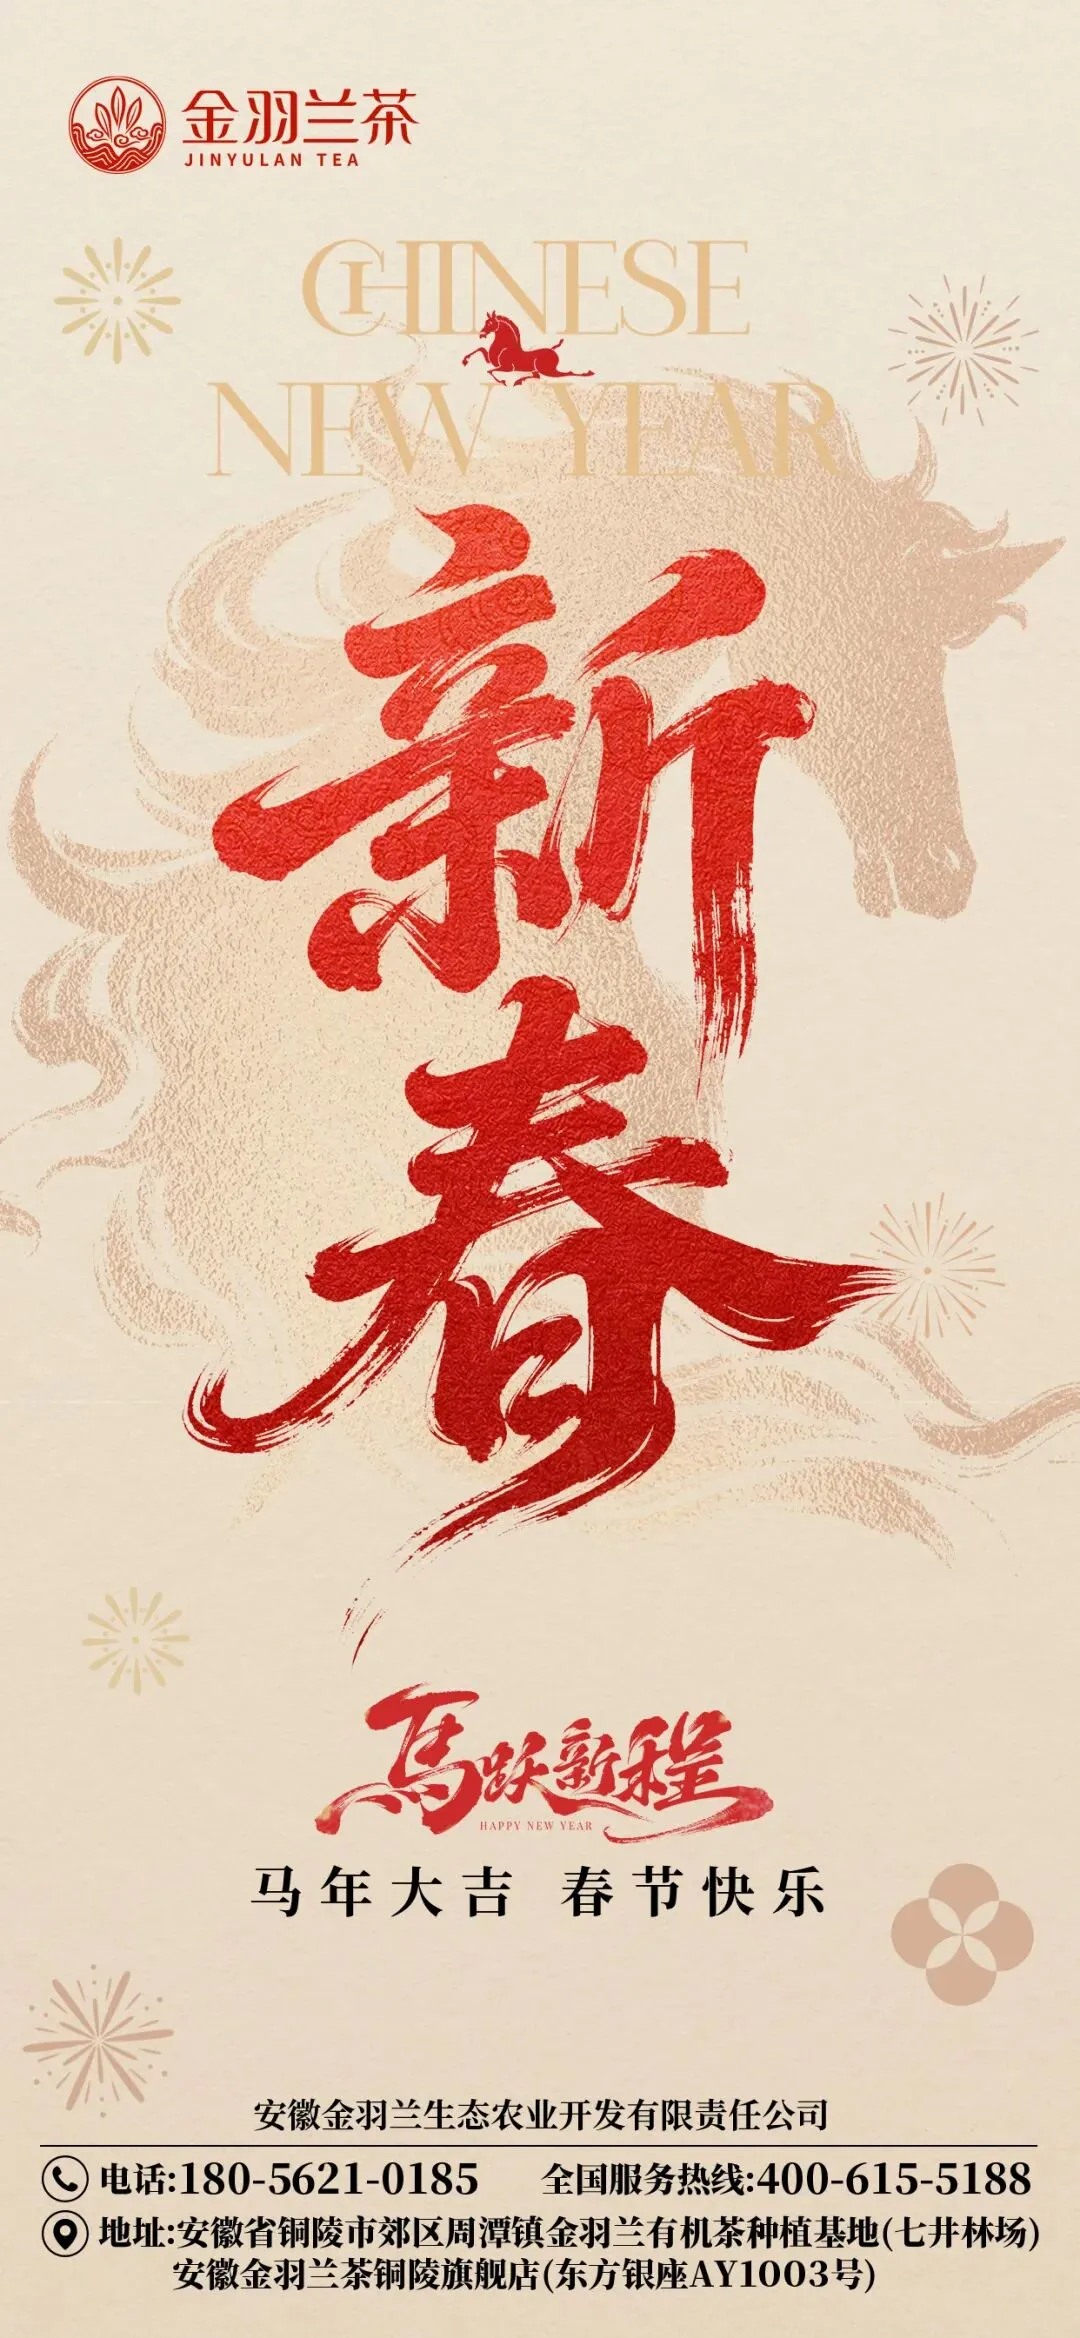 金羽兰茶
JINYULAN TEA
CHINESE
NEW YEAR
新
春
馬跃新程
HAPPY NEW YEAR
马年大吉 春节快乐
安徽金羽兰生态农业开发有限责任公司
电话:180-5621-0185 全国服务热线:400-615-5188
地址:安徽省铜陵市郊区周潭镇金羽兰有机茶种植基地(七井林场)
安徽金羽兰茶铜陵旗舰店(东方银座AY1003号)